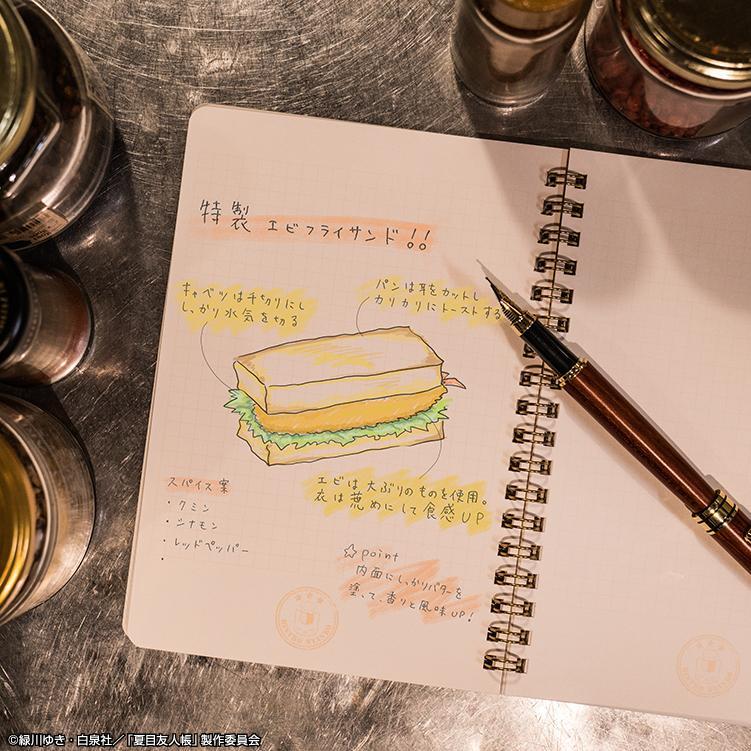 特製 エビフライサンド!!
キャベツは千切りにし
しっかり水気を切る
パンは耳をカットし
カリカリにトーストする
エビは大ぶりのものを使用。
衣は荒めにして食感UP
スパイス案
・クミン
・シナモン
・レッドペッパー
・
☆point
内面にしっかりバターを
塗って、香りと風味UP!
©緑川ゆき・白泉社／「夏目友人帳」製作委員会